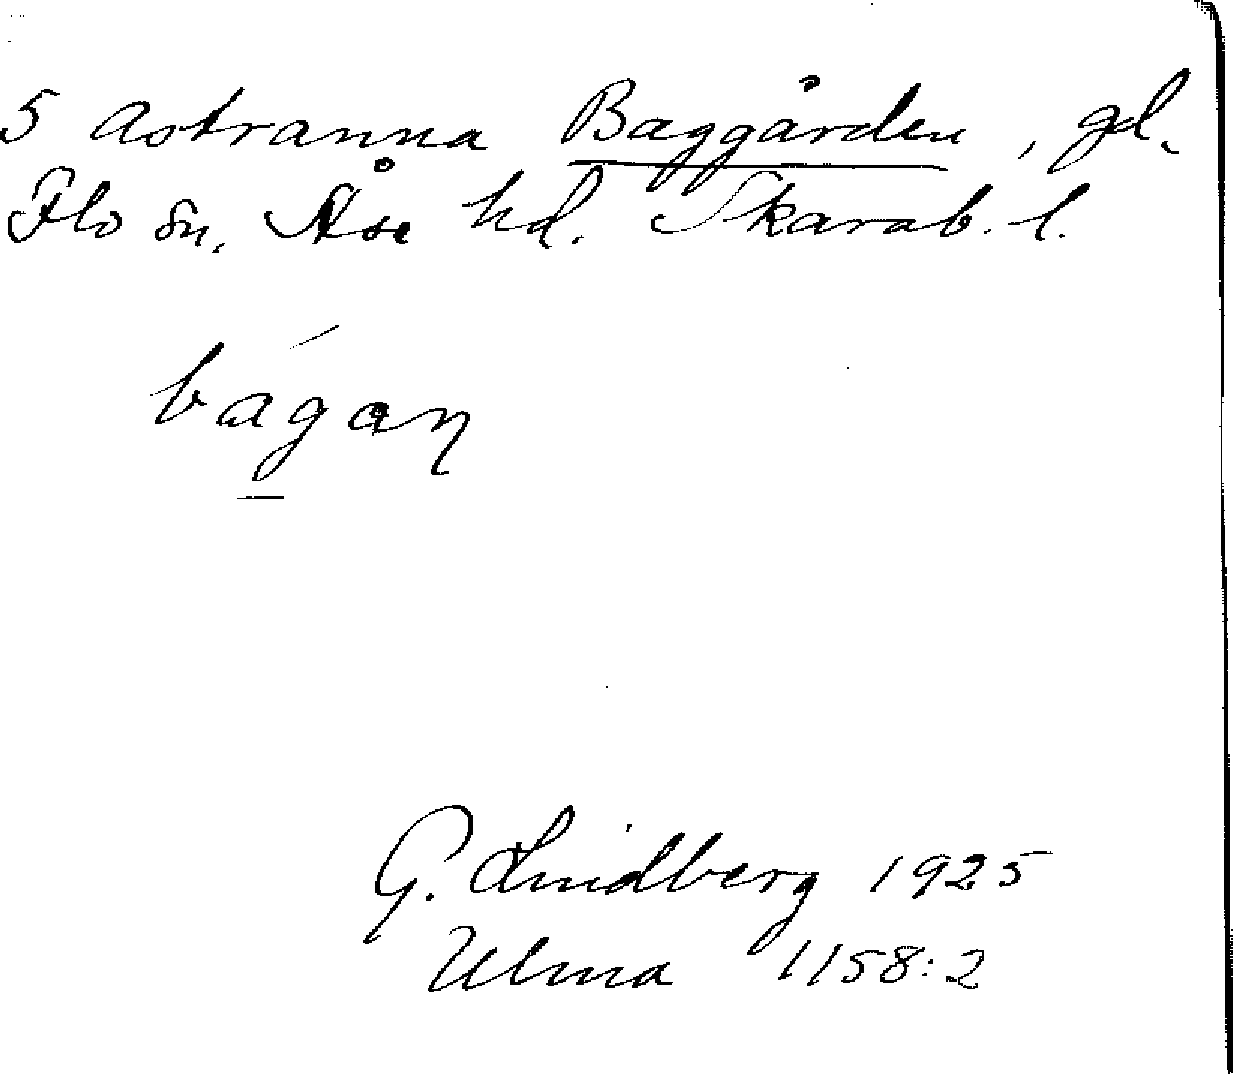 5 Astranna Baggården, gl.
Flo sn. Åse hd. Skarab. l.
bágaŋ
G. Lindberg 1925
Ulma 1158:2